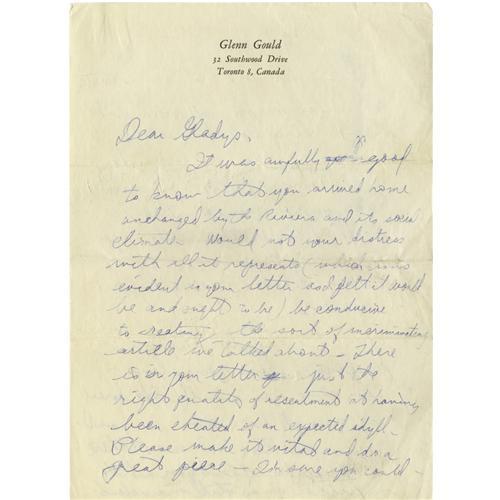 Glenn Gould
32 Southwood Drive
Toronto 8, Canada
Dear Gladys,
It was awfully good
to know that you arrived home
unchanged by the Riviera and its social
climate. Would not your distress
with all it represents (which was
evident in your letter and felt it would
be and ought to be) be conducive
to creating the sort of incriminating
article we talked about – There
is in your letter just the
right quality of resentment at having
been cheated of an expected idyll –
Please make it vital and do a
great piece – I'm sure you could –